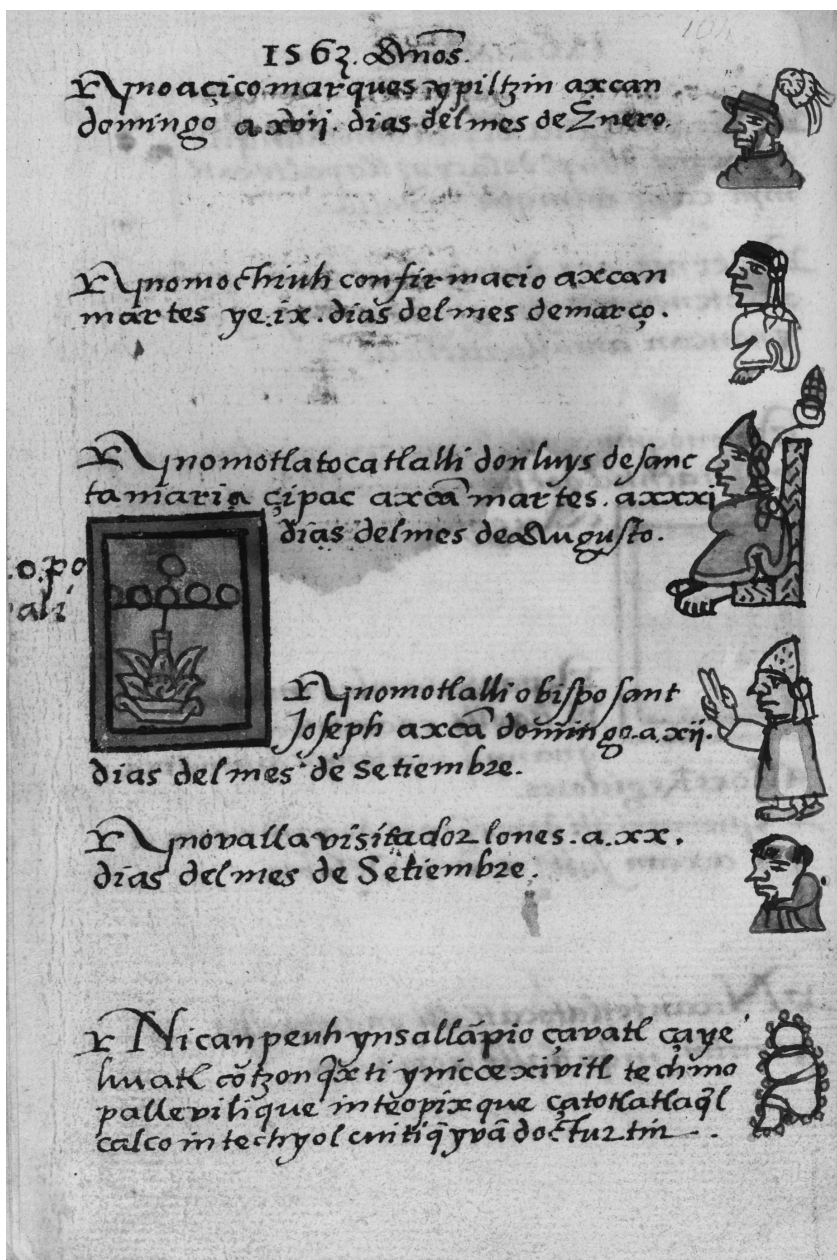 1563. Años.
Y Ypno açico marques ypiltzin axcan
domingo a xvij. dias del mes de Enero.
Y Ypno mochiuh confirmacio axcan
martes ye.ix. dias del mes de março.
Y Ypno motlatocatlalli don luys de sanc
ta maria çipac axcā martes. a xxxi
dias del mes de Augusto.
.o.po
ali
Y Ypno motlalli obispo sant
Joseph axcā domingo. a. xij.
dias del mes de setiembre.
Y Ypno valla visitador lones. a. xx.
dias del mes de Setiembre.
Y Nican peuh yn sallāpio çavatl ça ye
huatl cōtzonq̄xti ynic ce xivitl techmo
pallevilique in teopixque ça totlatlaq̄l
calco in techyolcuitiq̄ yvā docturtin.